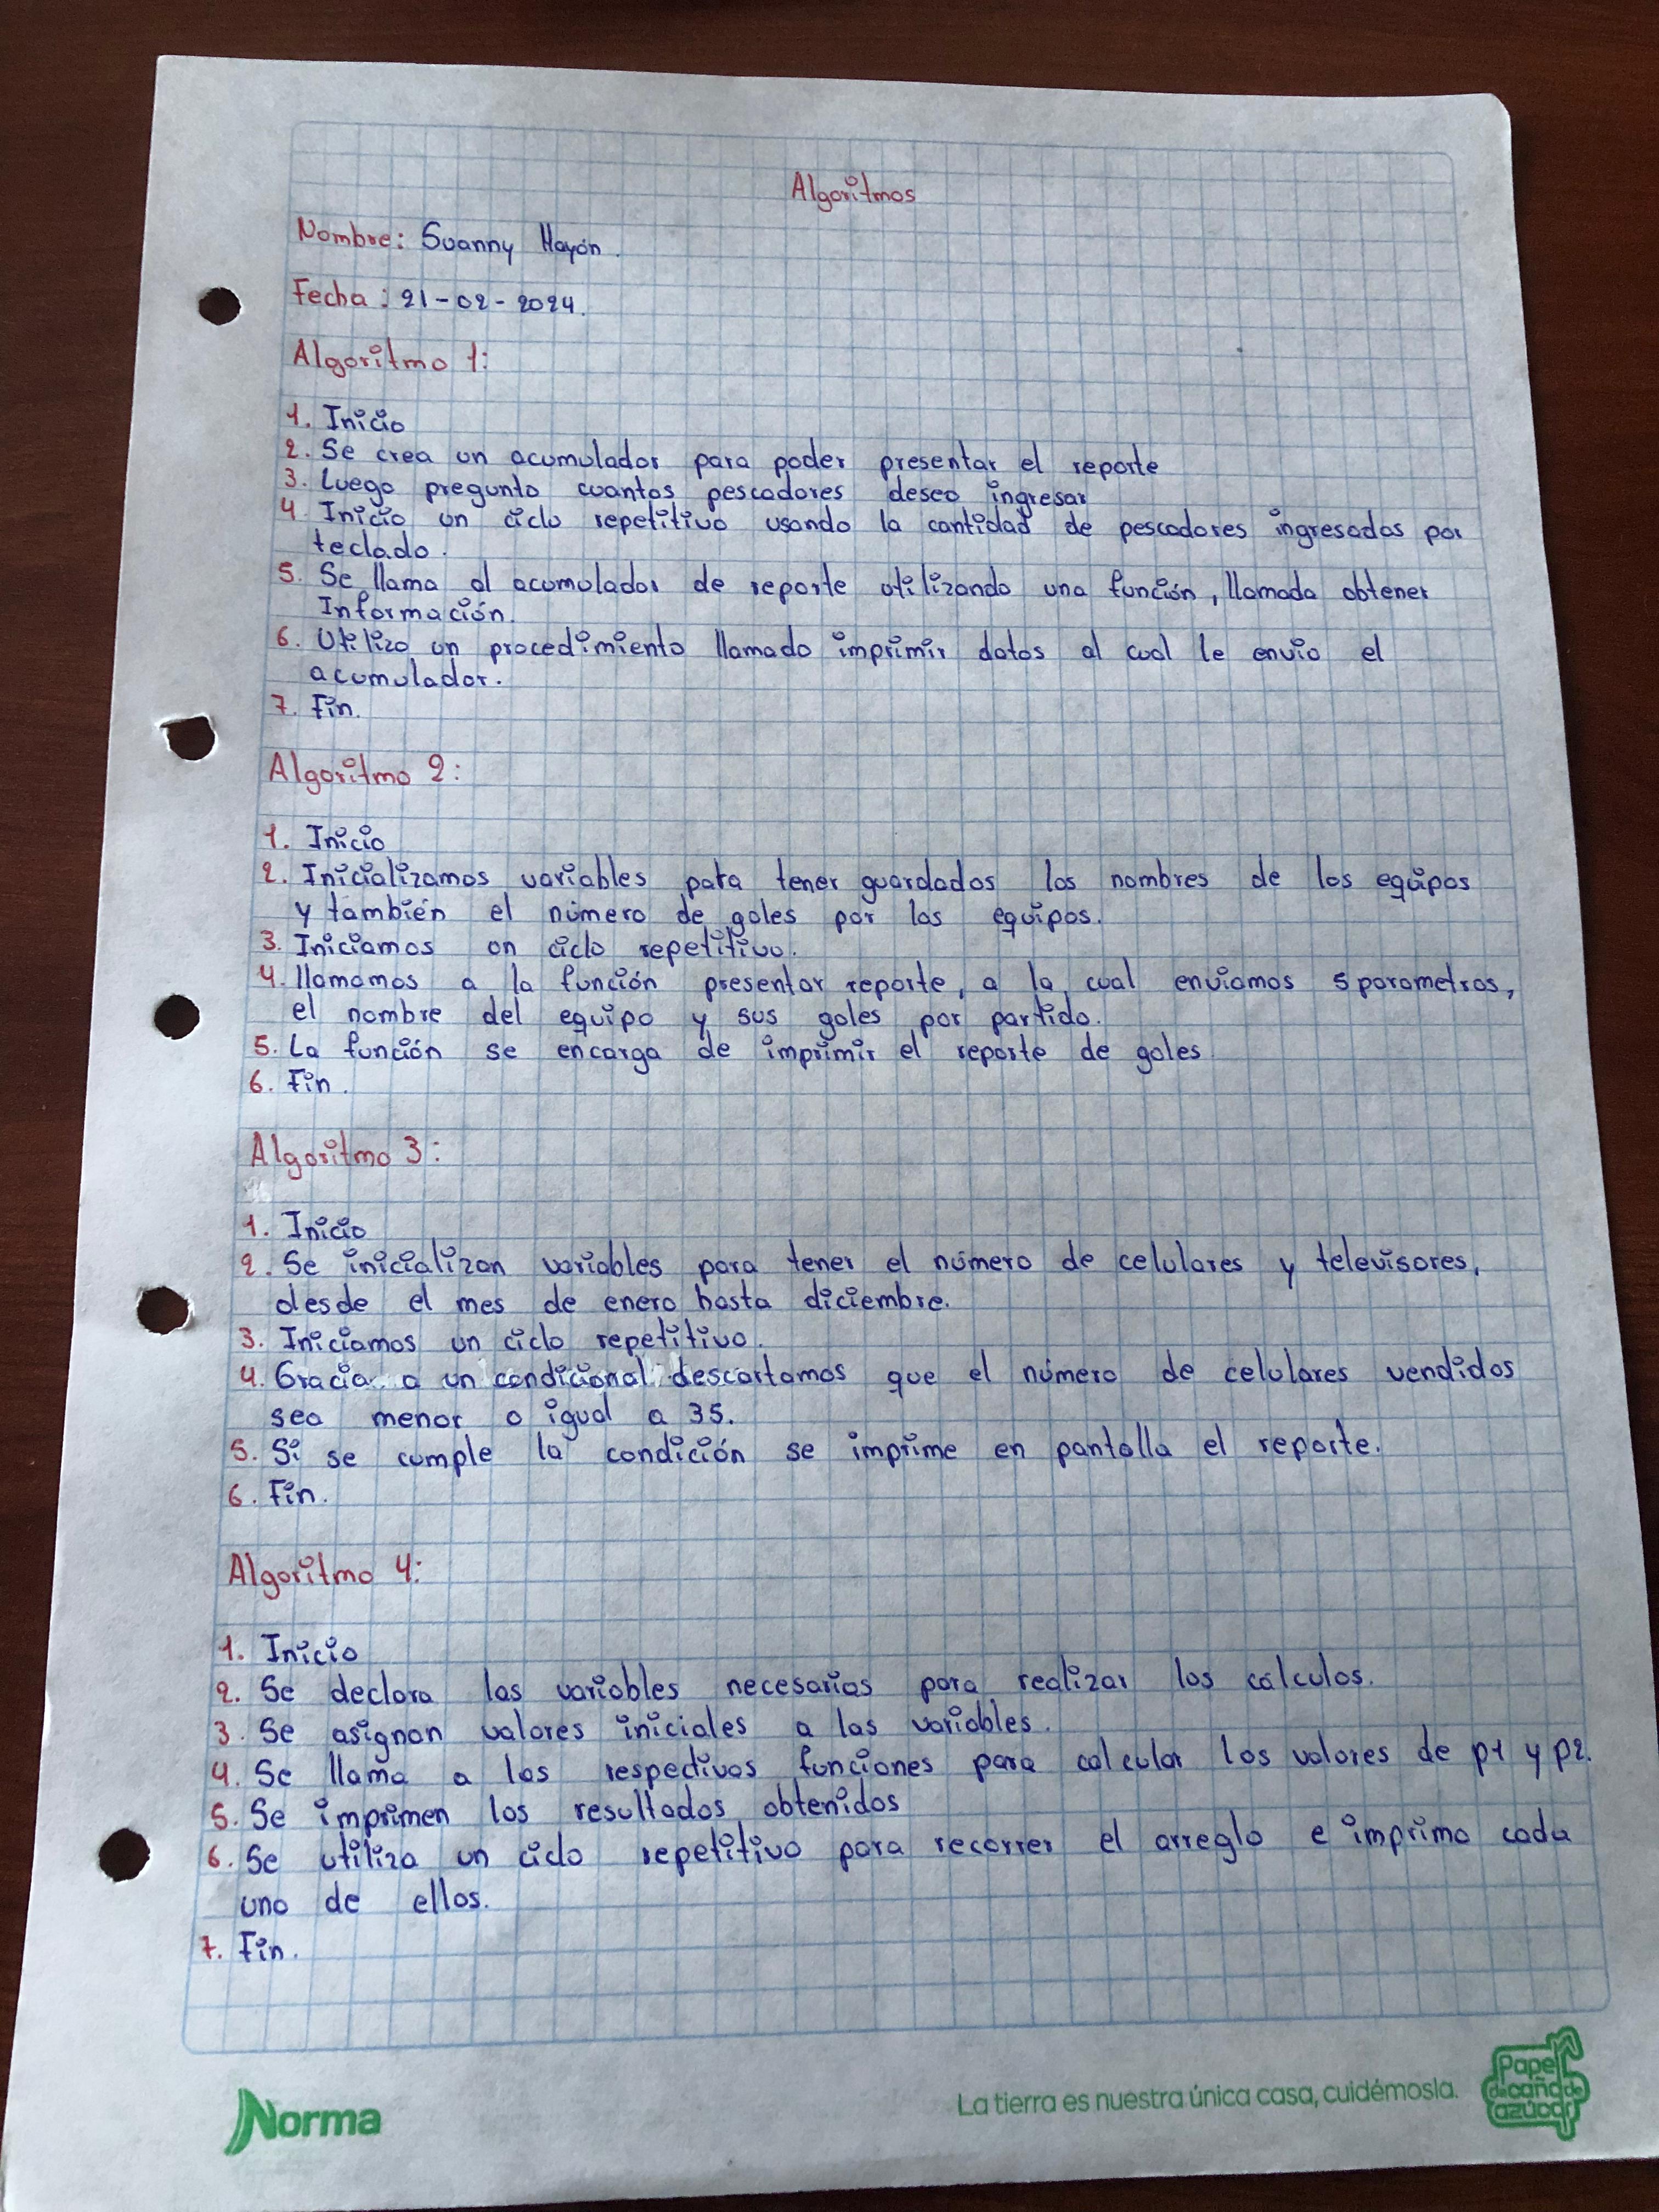 Algoritmos
Nombre: Suanny Hayón.
Fecha: 21-02-2024.
Algoritmo 1:
1. Inicio
2. Se crea un acumulador para poder presentar el reporte
3. Luego pregunto cuantos pescadores deseo ingresar
4 Inicio un ciclo repetitivo usando la cantidad de pescadores ingresados por
teclado.
5. Se llama al acumulador de reporte utilizando una función, llamada obtener
Información.
6. Utilizo un procedimiento llamado imprimir datos al cual le envio el
acumulador.
7. Fin.
Algoritmo 2:
1. Inicio
2. Inicializamos variables para tener guardados los nombres de los equipos
y también el número de goles por los equipos.
3. Iniciamos un ciclo repetitivo.
4. llamamos a la función presentar reporte, a la cual enviamos 5 parametros,
el nombre del equipo y sus goles por partido.
5. La función se encarga de imprimir el reporte de goles
6. Fin.
Algoritmo 3:
1. Inicio
2. Se inicializan variables para tener el número de celulares y televisores,
desde el mes de enero hasta diciembre.
3. Iniciamos un ciclo repetitivo.
4. Gracia a un condicional descartamos que el número de celulares vendidos
sea menor o igual a 35.
5. Si se cumple la condición se imprime en pantalla el reporte.
6. Fin.
Algoritmo 4:
1. Inicio
2. Se declara las variables necesarias para realizar los cálculos.
3. Se asignan valores iniciales a las variables.
4. Se llama a las respectivas funciones para calcular los valores de p1 y p2.
5. Se imprimen los resultados obtenidos
6. Se utiliza un ciclo repetitivo para recorrer el arreglo e imprimo cada
uno de ellos.
7. Fin.
Norma
La tierra es nuestra única casa, cuidémosla.
Papel
de caña de
azúcar